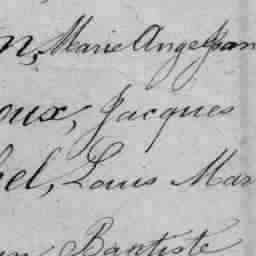 n, Marie Ange Jean
oux, Jacques
el, Louis Mar
Baptiste